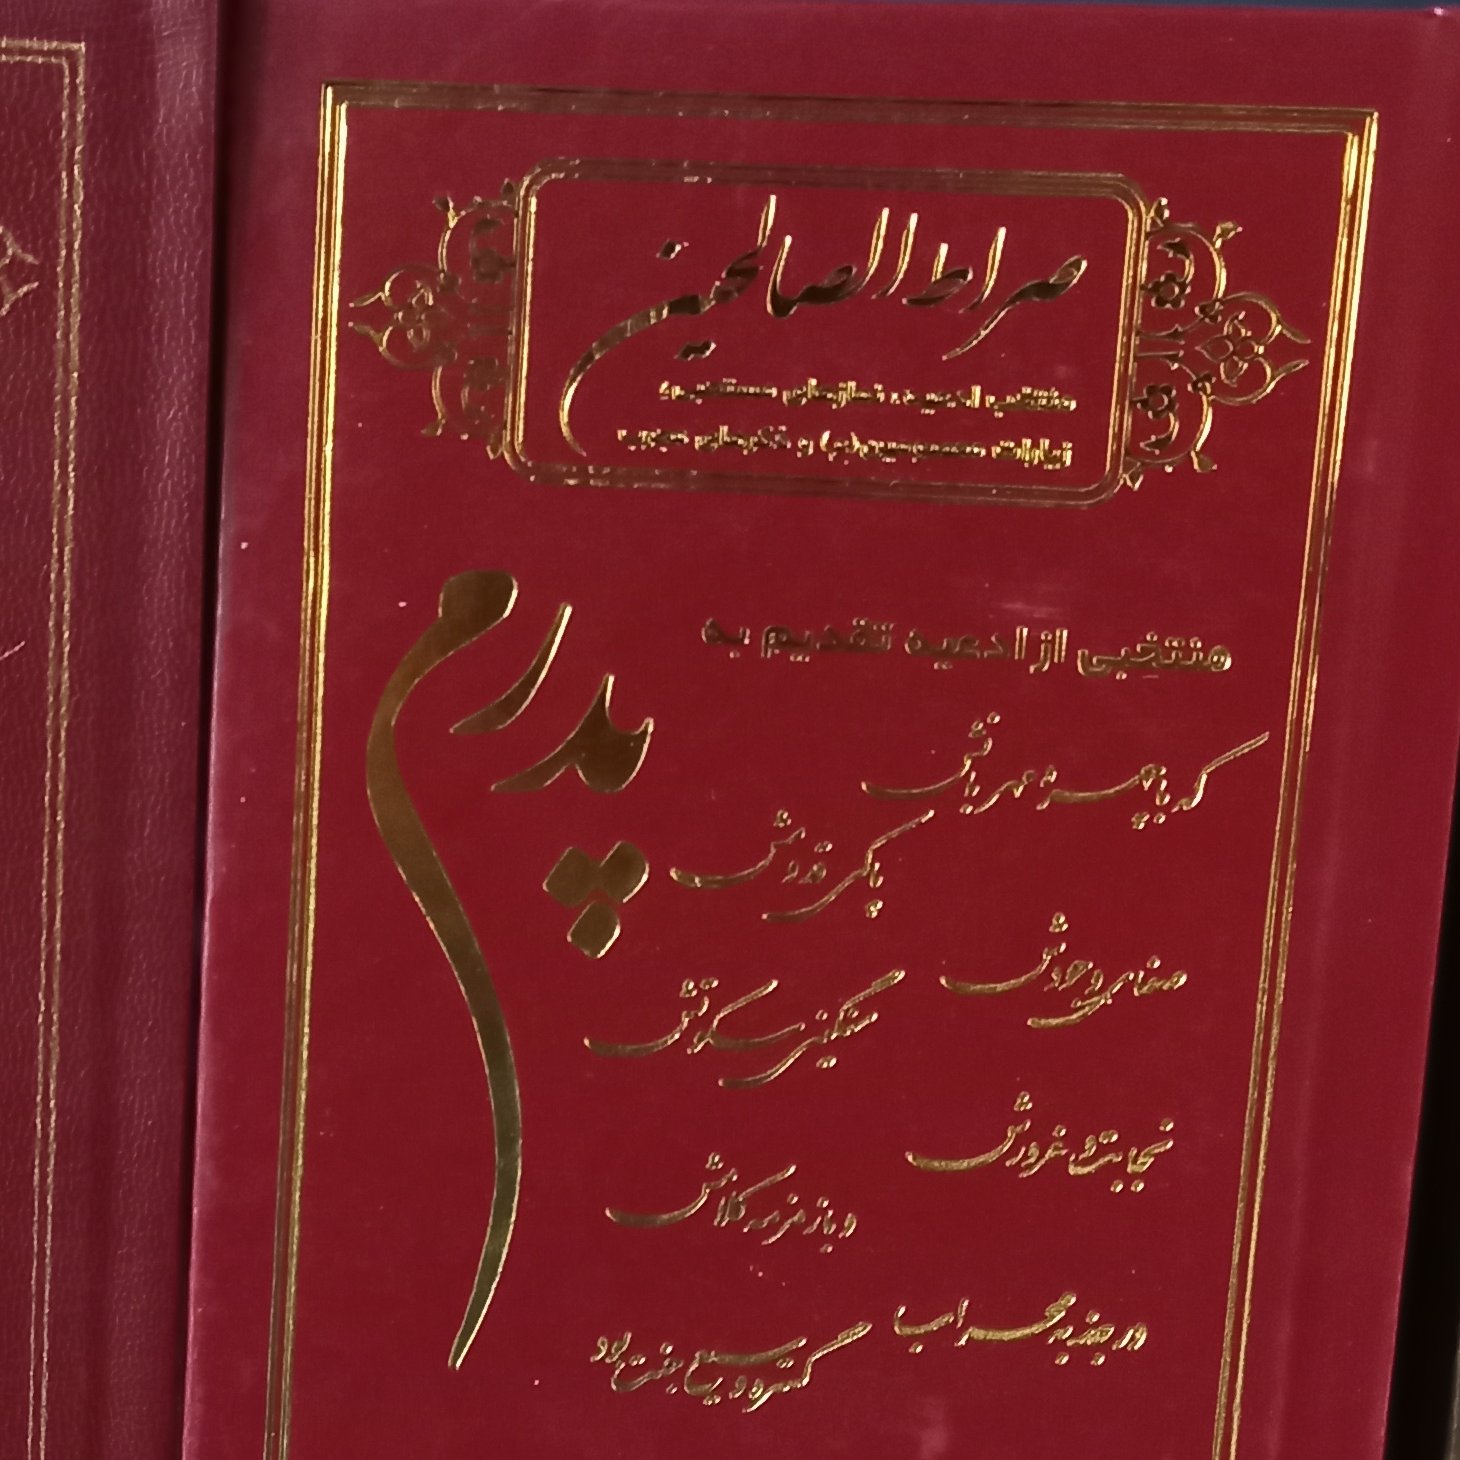 صراط الصالحین
منتخب ادعیه، نمازهای مستحبی،
زیارات معصومین(ع) و ذکرهای مجرب
منتخبی از ادعیه تقدیم به
پدرم
که با چهره مهربانش
پاکی قدومش
صفای وجودش
سنگینی سکوتش
نجابت و غرورش
و با زمزمه کلامش
در جذبه محراب
گستره وسیع جنت بود